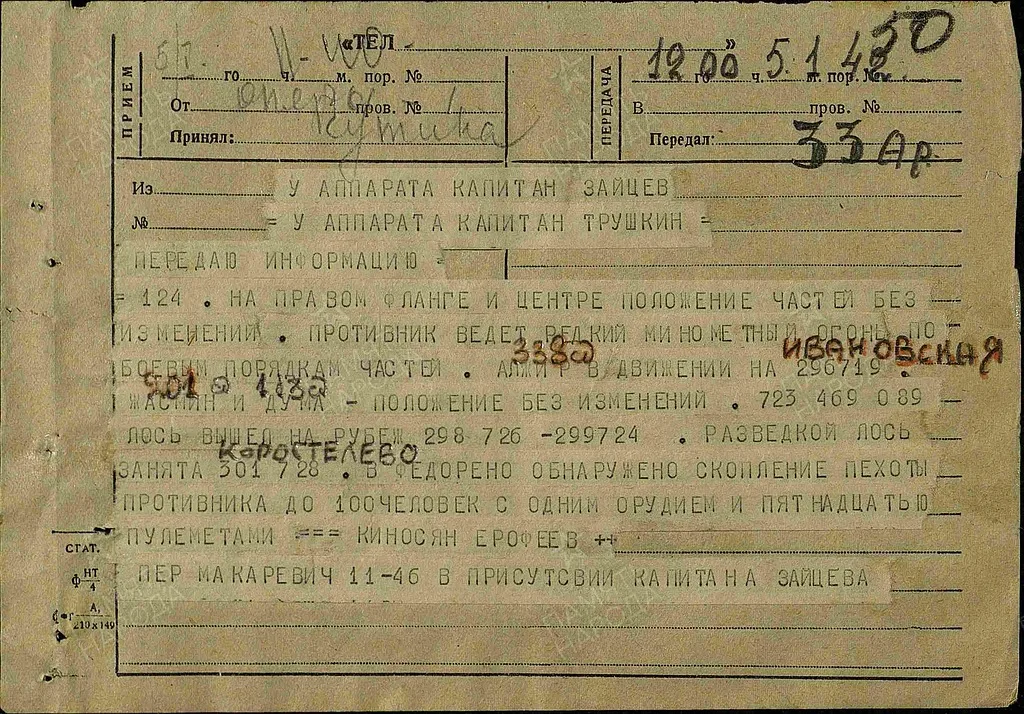 50
«ТЕЛ »
5/I. го 11-40 ч. м. пор. №
12 00 ч. 5.1.42 г. пор. №
ПРИЕМ
ПЕРЕДАЧА
От пров. № 1
В пров. №
Принял:
Передал:
33 Ар.
Из У АППАРАТА КАПИТАН ЗАЙЦЕВ
№ = У АППАРАТА КАПИТАН ТРУШКИН =
ПЕРЕДАЮ ИНФОРМАЦИЮ =
= 124 . НА ПРАВОМ ФЛАНГЕ И ЦЕНТРЕ ПОЛОЖЕНИЕ ЧАСТЕЙ БЕЗ
ИЗМЕНЕНИЙ . ПРОТИВНИК ВЕДЕТ РЕДКИЙ МИНОМЕТНЫЙ ОГОНЬ ПО
338д ИВАНОВСКАЯ
БОЕВЫМ ПОРЯДКАМ ЧАСТЕЙ . АЛЖИР В ДВИЖЕНИИ НА 296719 .
201 д 113д
ЖАСМИН И ДУМА - ПОЛОЖЕНИЕ БЕЗ ИЗМЕНЕНИЙ . 723 469 089
ЛОСЬ ВЫШЕЛ НА РУБЕЖ 298 726 -299724 . РАЗВЕДКОЙ ЛОСЬ
КОРОСТЕЛЕВО
ЗАНЯТА 301 728 . В ФЕДОРЕНО ОБНАРУЖЕНО СКОПЛЕНИЕ ПЕХОТЫ
ПРОТИВНИКА ДО 100ЧЕЛОВЕК С ОДНИМ ОРУДИЕМ И ПЯТНАДЦАТЬЮ
ПУЛЕМЕТАМИ === КИНОСЯН ЕРОФЕЕВ ++
ПЕР МАКАРЕВИЧ 11-46 В ПРИСУТСВИИ КАПИТАНА ЗАЙЦЕВА
СТАТ.
ф НТ/4
ф-г А, 210х149
ПАМЯТЬ НАРОДА